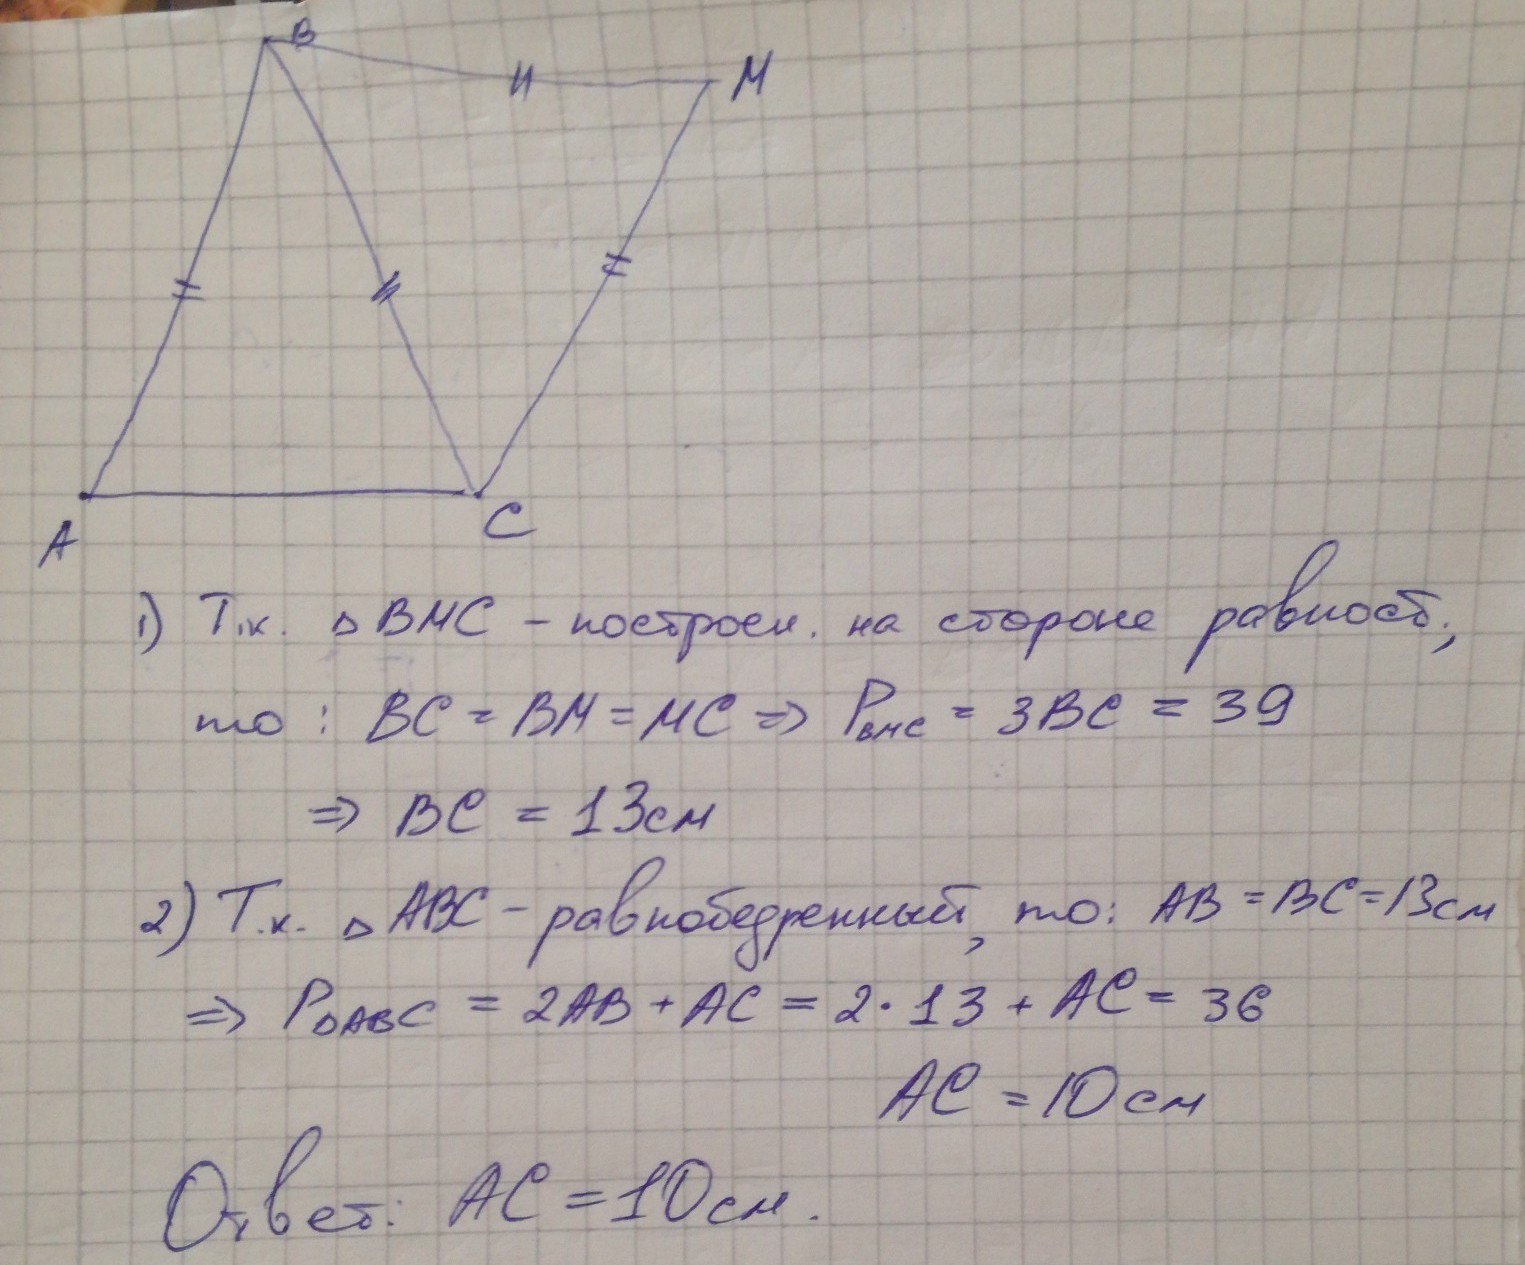 B
M
A
C
1) Т.к. △ BMC – построен. на стороне равност.,
то: BC = BM = MC => P BMC = 3BC = 39
=> BC = 13см
2) Т.к. △ ABC – равнобедренный, то: AB = BC = 13см
=> P△ABC = 2AB + AC = 2·13 + AC = 36
AC = 10см
Ответ: AC = 10см.